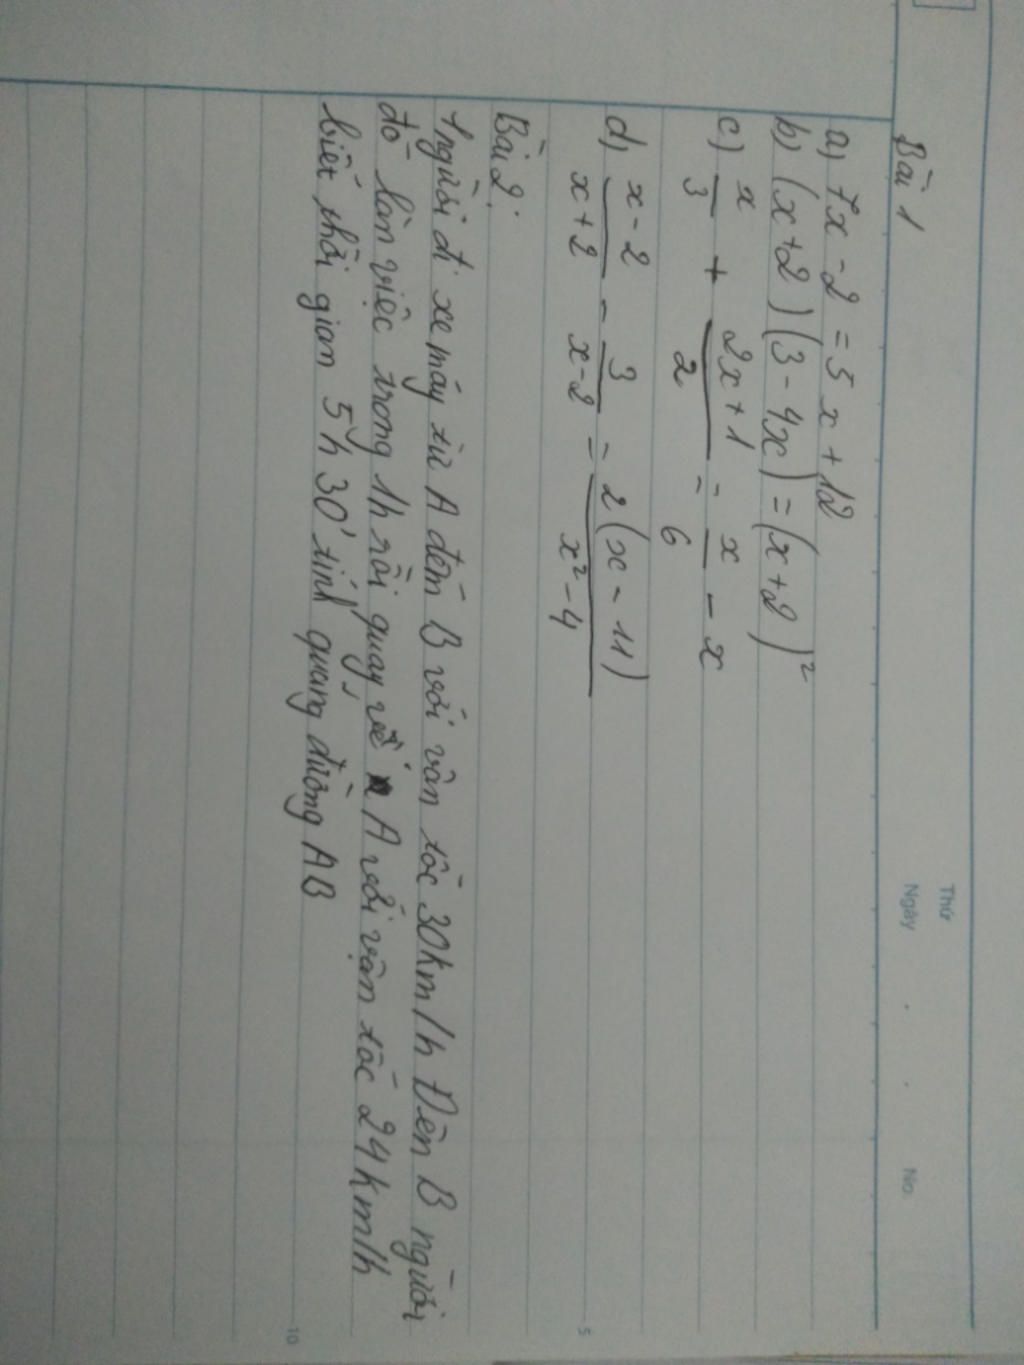 Thứ
Ngày . . No.
Bài 1
a) 7x - 2 = 5x + 12
b) (x+2)(3-4x) = (x+2)²
c) x/3 + (2x+1)/2 = x/6 - x
d) (x-2)/(x+2) - 3/(x-2) = 2(x-11)/(x²-4)
Bài 2:
1 người đi xe máy từ A đến B với vân tốc 30km/h Đến B người
đó làm việc trong 1h rồi quay về A với vận tốc 24km/h
biết thời gian 5h30' tính quãng đường AB
5
10